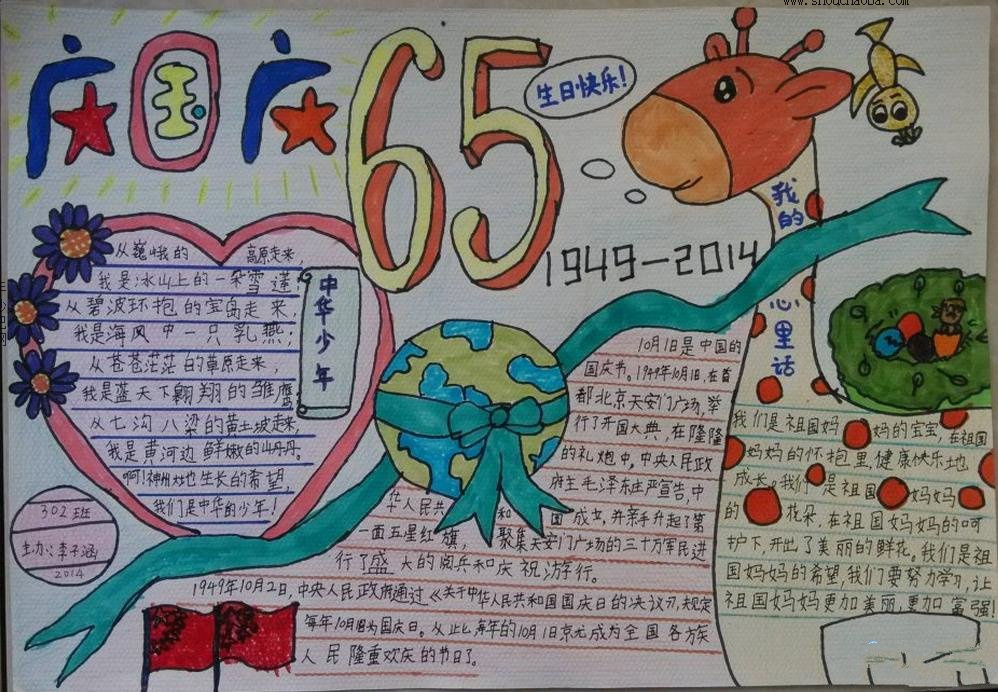 www.shouchaoba.com
庆国庆
65
生日快乐!
1949-2014
从巍峨的 高原走来,
我是冰山上的一朵雪莲;
从碧波环抱的宝岛走来,
我是海风中一只乳燕;
从苍苍茫茫的草原走来,
我是蓝天下翱翔的雏鹰
从七沟八梁的黄土坡走来,
我是黄河边鲜嫩的山丹丹。
啊!神州 生长的希望,
我们是中华的少年!
中华少年
302班
主办:李子涵
2014
10月1日是中国的
国庆节。1949年10月1日,在首
都北京天安门广场,举
行了开国大典,在隆隆
的礼炮中,中央人民政
府主毛泽东庄严宣告,中
华人民共 和 国成立,并亲手升起了第
一面五星红旗, 聚集天安门广场的三十万军民进
行了盛大的阅兵和庆祝游行。
1949年10月2日,中央人民政府通过《关于中华人民共和国国庆日的决议》,规定
每年10月1日为国庆日。从此每年的10月1日 成为全国各方族
人民隆重欢庆的节日了。
我的
心里话
我们是祖国妈妈的宝宝,在祖国
妈妈的怀抱里健康快乐地
成长。我们是祖国妈妈
的 花朵,在祖国妈妈的呵
护下,开出了美丽的鲜花。我们是祖
国妈妈的希望,我们要努力学习,让
祖国妈妈更加美丽,更加富强!